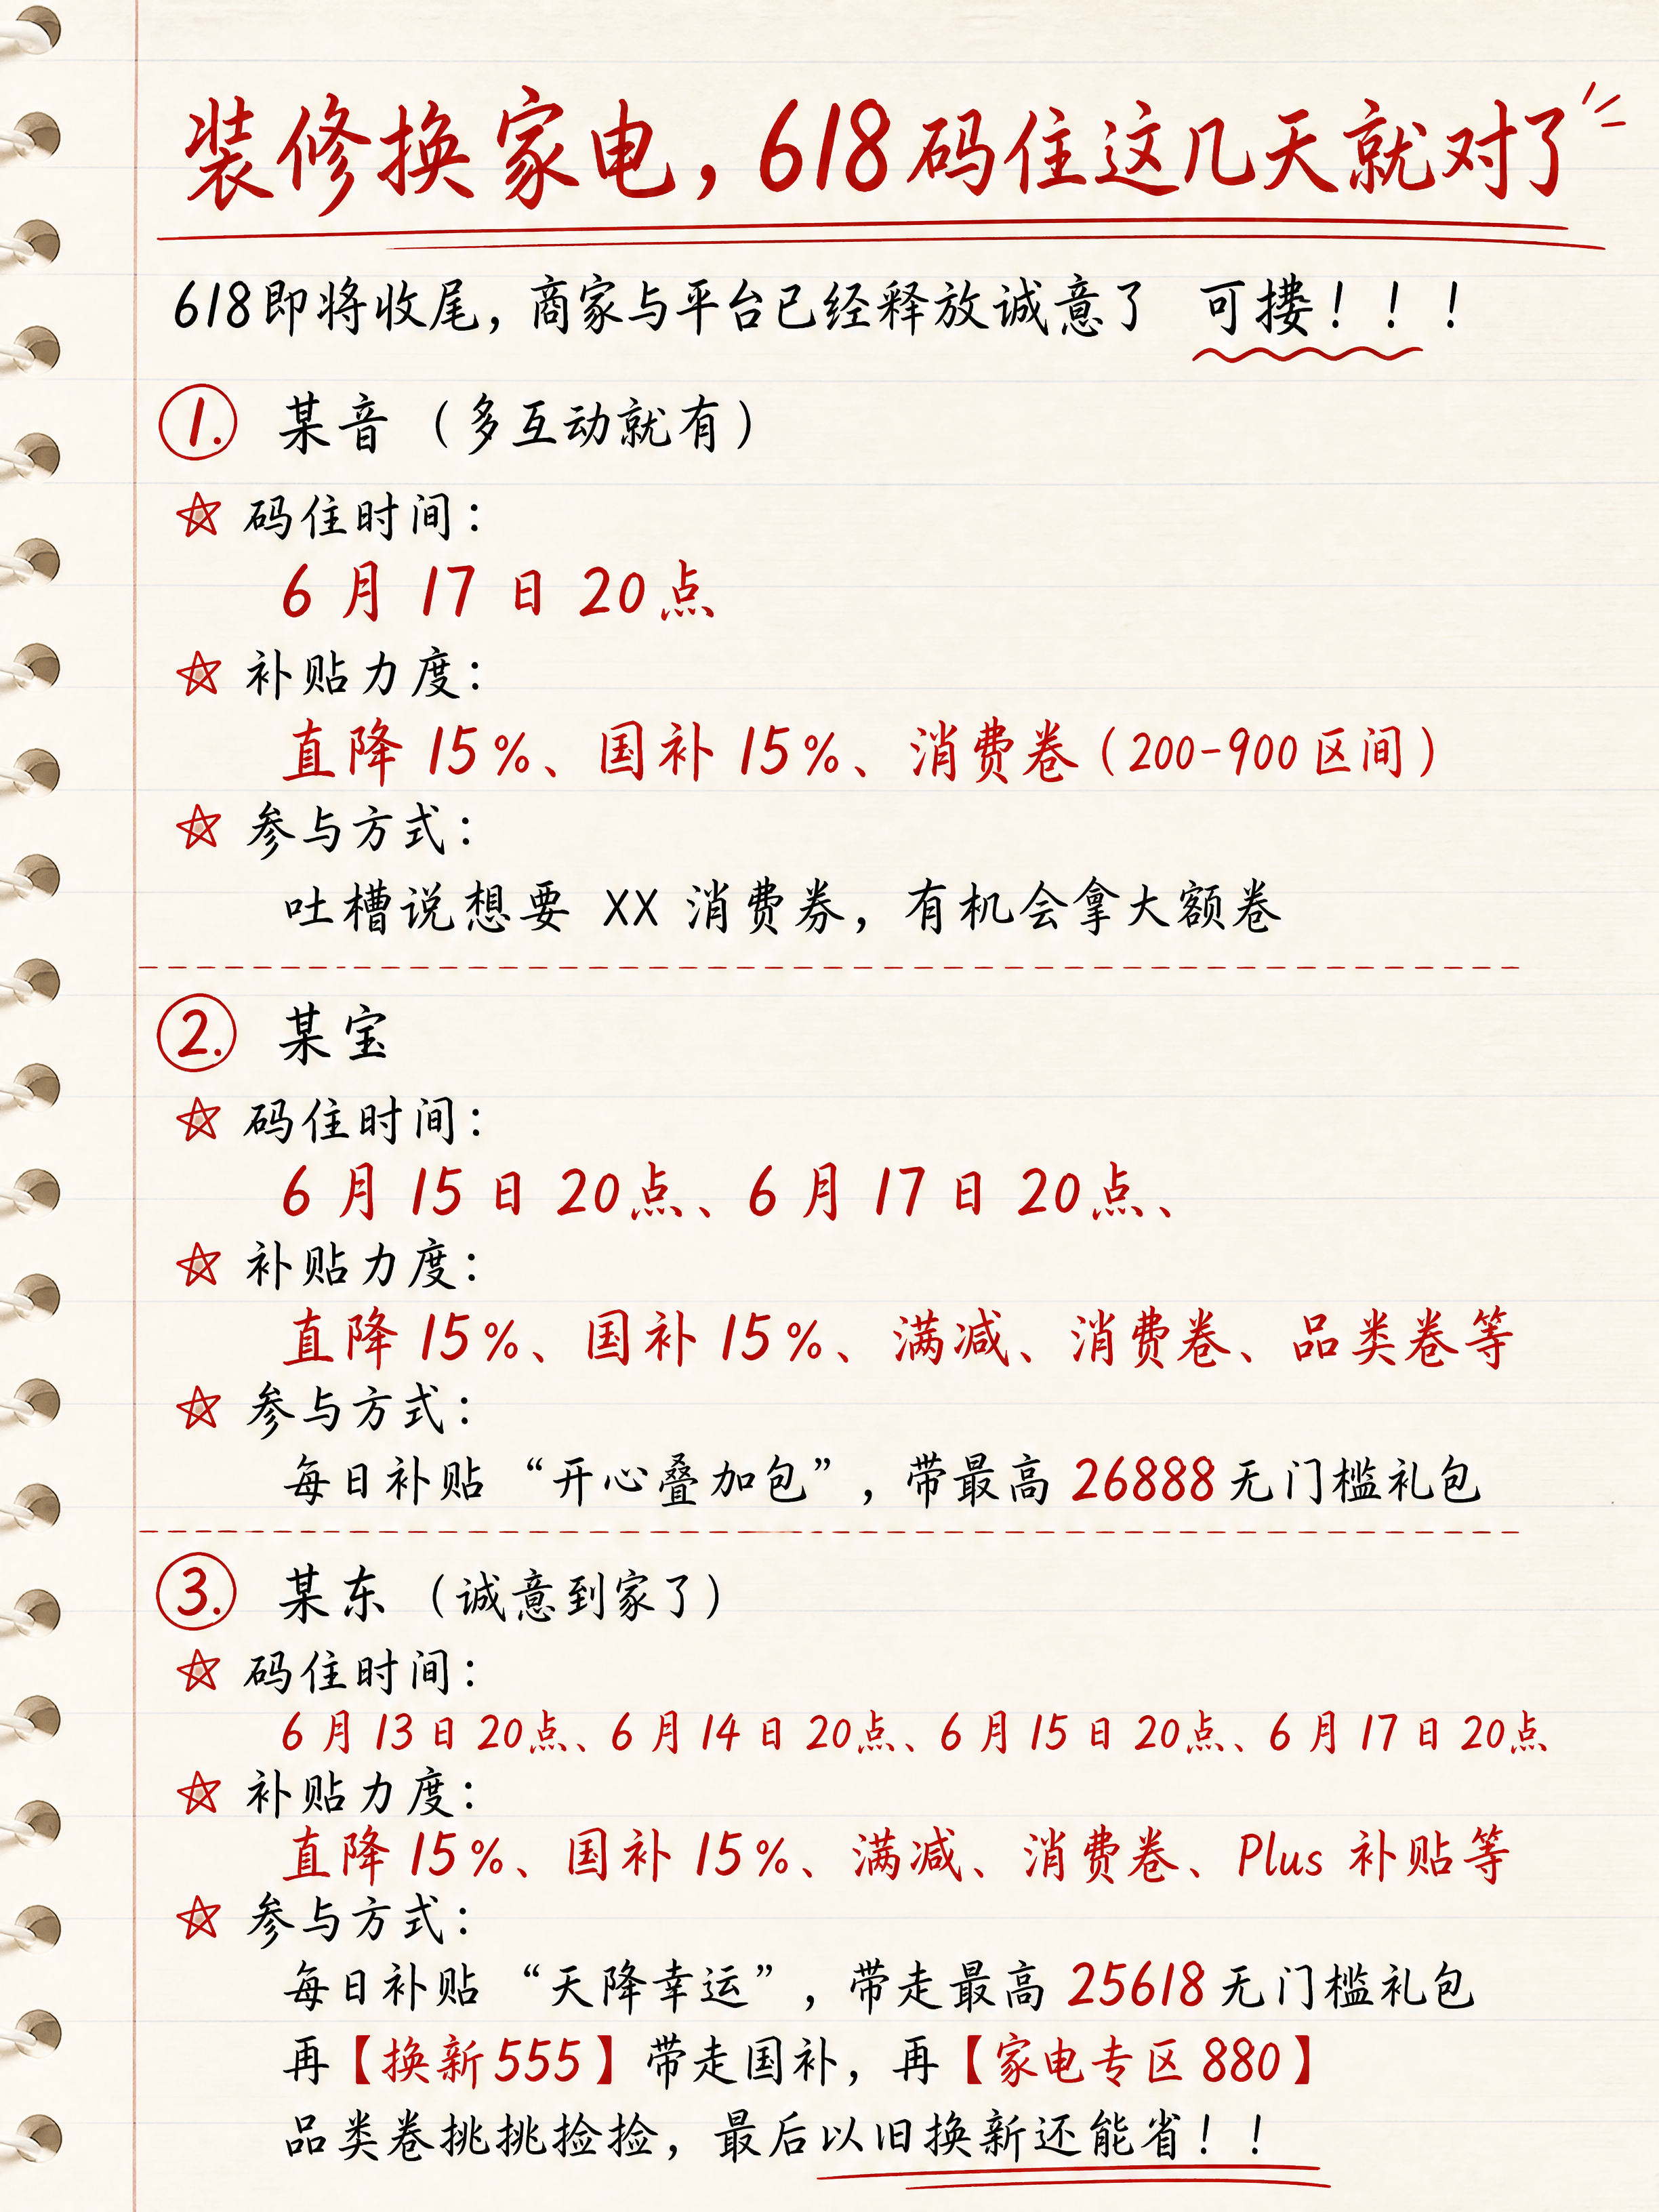 装修换家电，618码住这几天就对了
618即将收尾，商家与平台已经释放诚意了 可搂！！！
1. 某音（多互动就有）
码住时间：
6月17日20点
补贴力度：
直降15%、国补15%、消费卷（200-900区间）
参与方式：
吐槽说想要 XX 消费券，有机会拿大额卷
2. 某宝
码住时间：
6月15日20点、6月17日20点、
补贴力度：
直降15%、国补15%、满减、消费卷、品类卷等
参与方式：
每日补贴“开心叠加包”，带最高26888无门槛礼包
3. 某东（诚意到家了）
码住时间：
6月13日20点、6月14日20点、6月15日20点、6月17日20点
补贴力度：
直降15%、国补15%、满减、消费卷、Plus 补贴等
参与方式：
每日补贴“天降幸运”，带走最高25618无门槛礼包
再【换新555】带走国补，再【家电专区880】
品类卷挑挑捡捡，最后以旧换新还能省！！